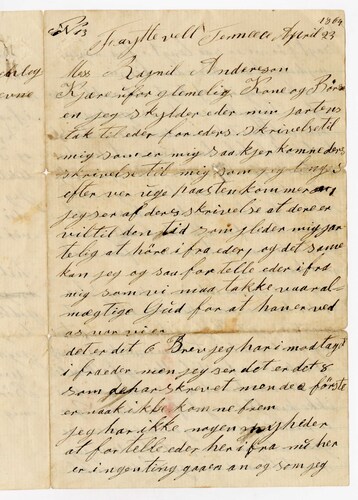 No 3
1864
Fayttevell Tennecee April 23
Miss Ragnil Anderson
Kjære uforglemelig Kone og Børn
en jeg skylder eder min jartens
tak til eder for eders skrivelse til
mig som er mig saa kjerkomne ders
skrivelse til mig som jeg
ofter ver uge paasten kommer an
jeg ser af ders skrivelse at dere er
vil til don tid som gleder mig jar
telig at höre ifra eder og det same
kan jeg og saa fortelle eder ifra
mig som vi maa takke vaar al
mægtige Gud for at han er ved
os vor vi er
det er dit 6 Brev jeg har imodtaget
ifra eder men jeg ser det er det 8
som de har skrevet men de 2 förste
er naak ikke komne frem
jeg har ikke nogen nyheder
at fortelle eder her ifra nu her
er ingenting gaaen an og som jeg